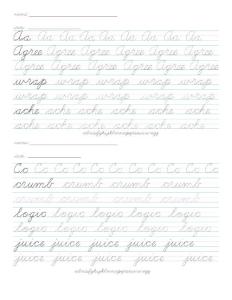 Aa Aa Aa Aa Aa Aa Aa
Agree Agree Agree Agree
Agree Agree Agree Agree
wrap wrap wrap wrap
wrap wrap wrap wrap
ache ache ache ache
ache ache ache ache
Cc Cc Cc Cc Cc Cc Cc Cc
crumb crumb crumb crumb
crumb crumb crumb crumb
logic logic logic logic logic
logic logic logic logic logic
juice juice juice juice juice
juice juice juice juice juice